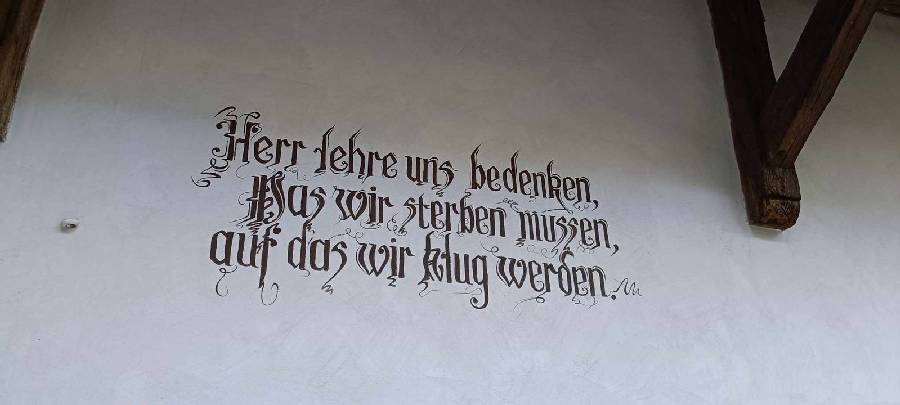 Herr lehre uns bedenken,
Das wir sterben mussen,
auf das wir klug werden.